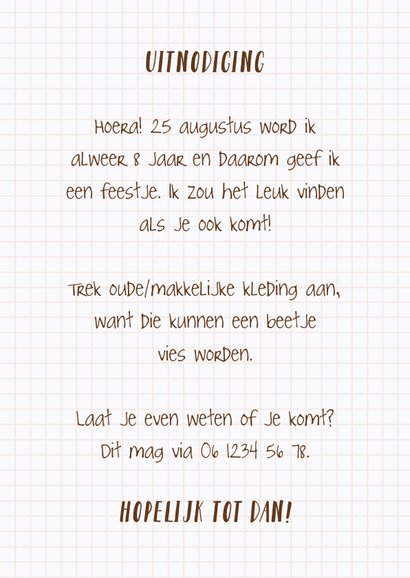 UITNODIGING
Hoera! 25 augustus word ik
alweer 8 jaar en daarom geef ik
een feestje. Ik zou het leuk vinden
als je ook komt!
Trek oude/makkelijke kleding aan,
want die kunnen een beetje
vies worden.
Laat je even weten of je komt?
Dit mag via 06 1234 56 78.
HOPELIJK TOT DAN!